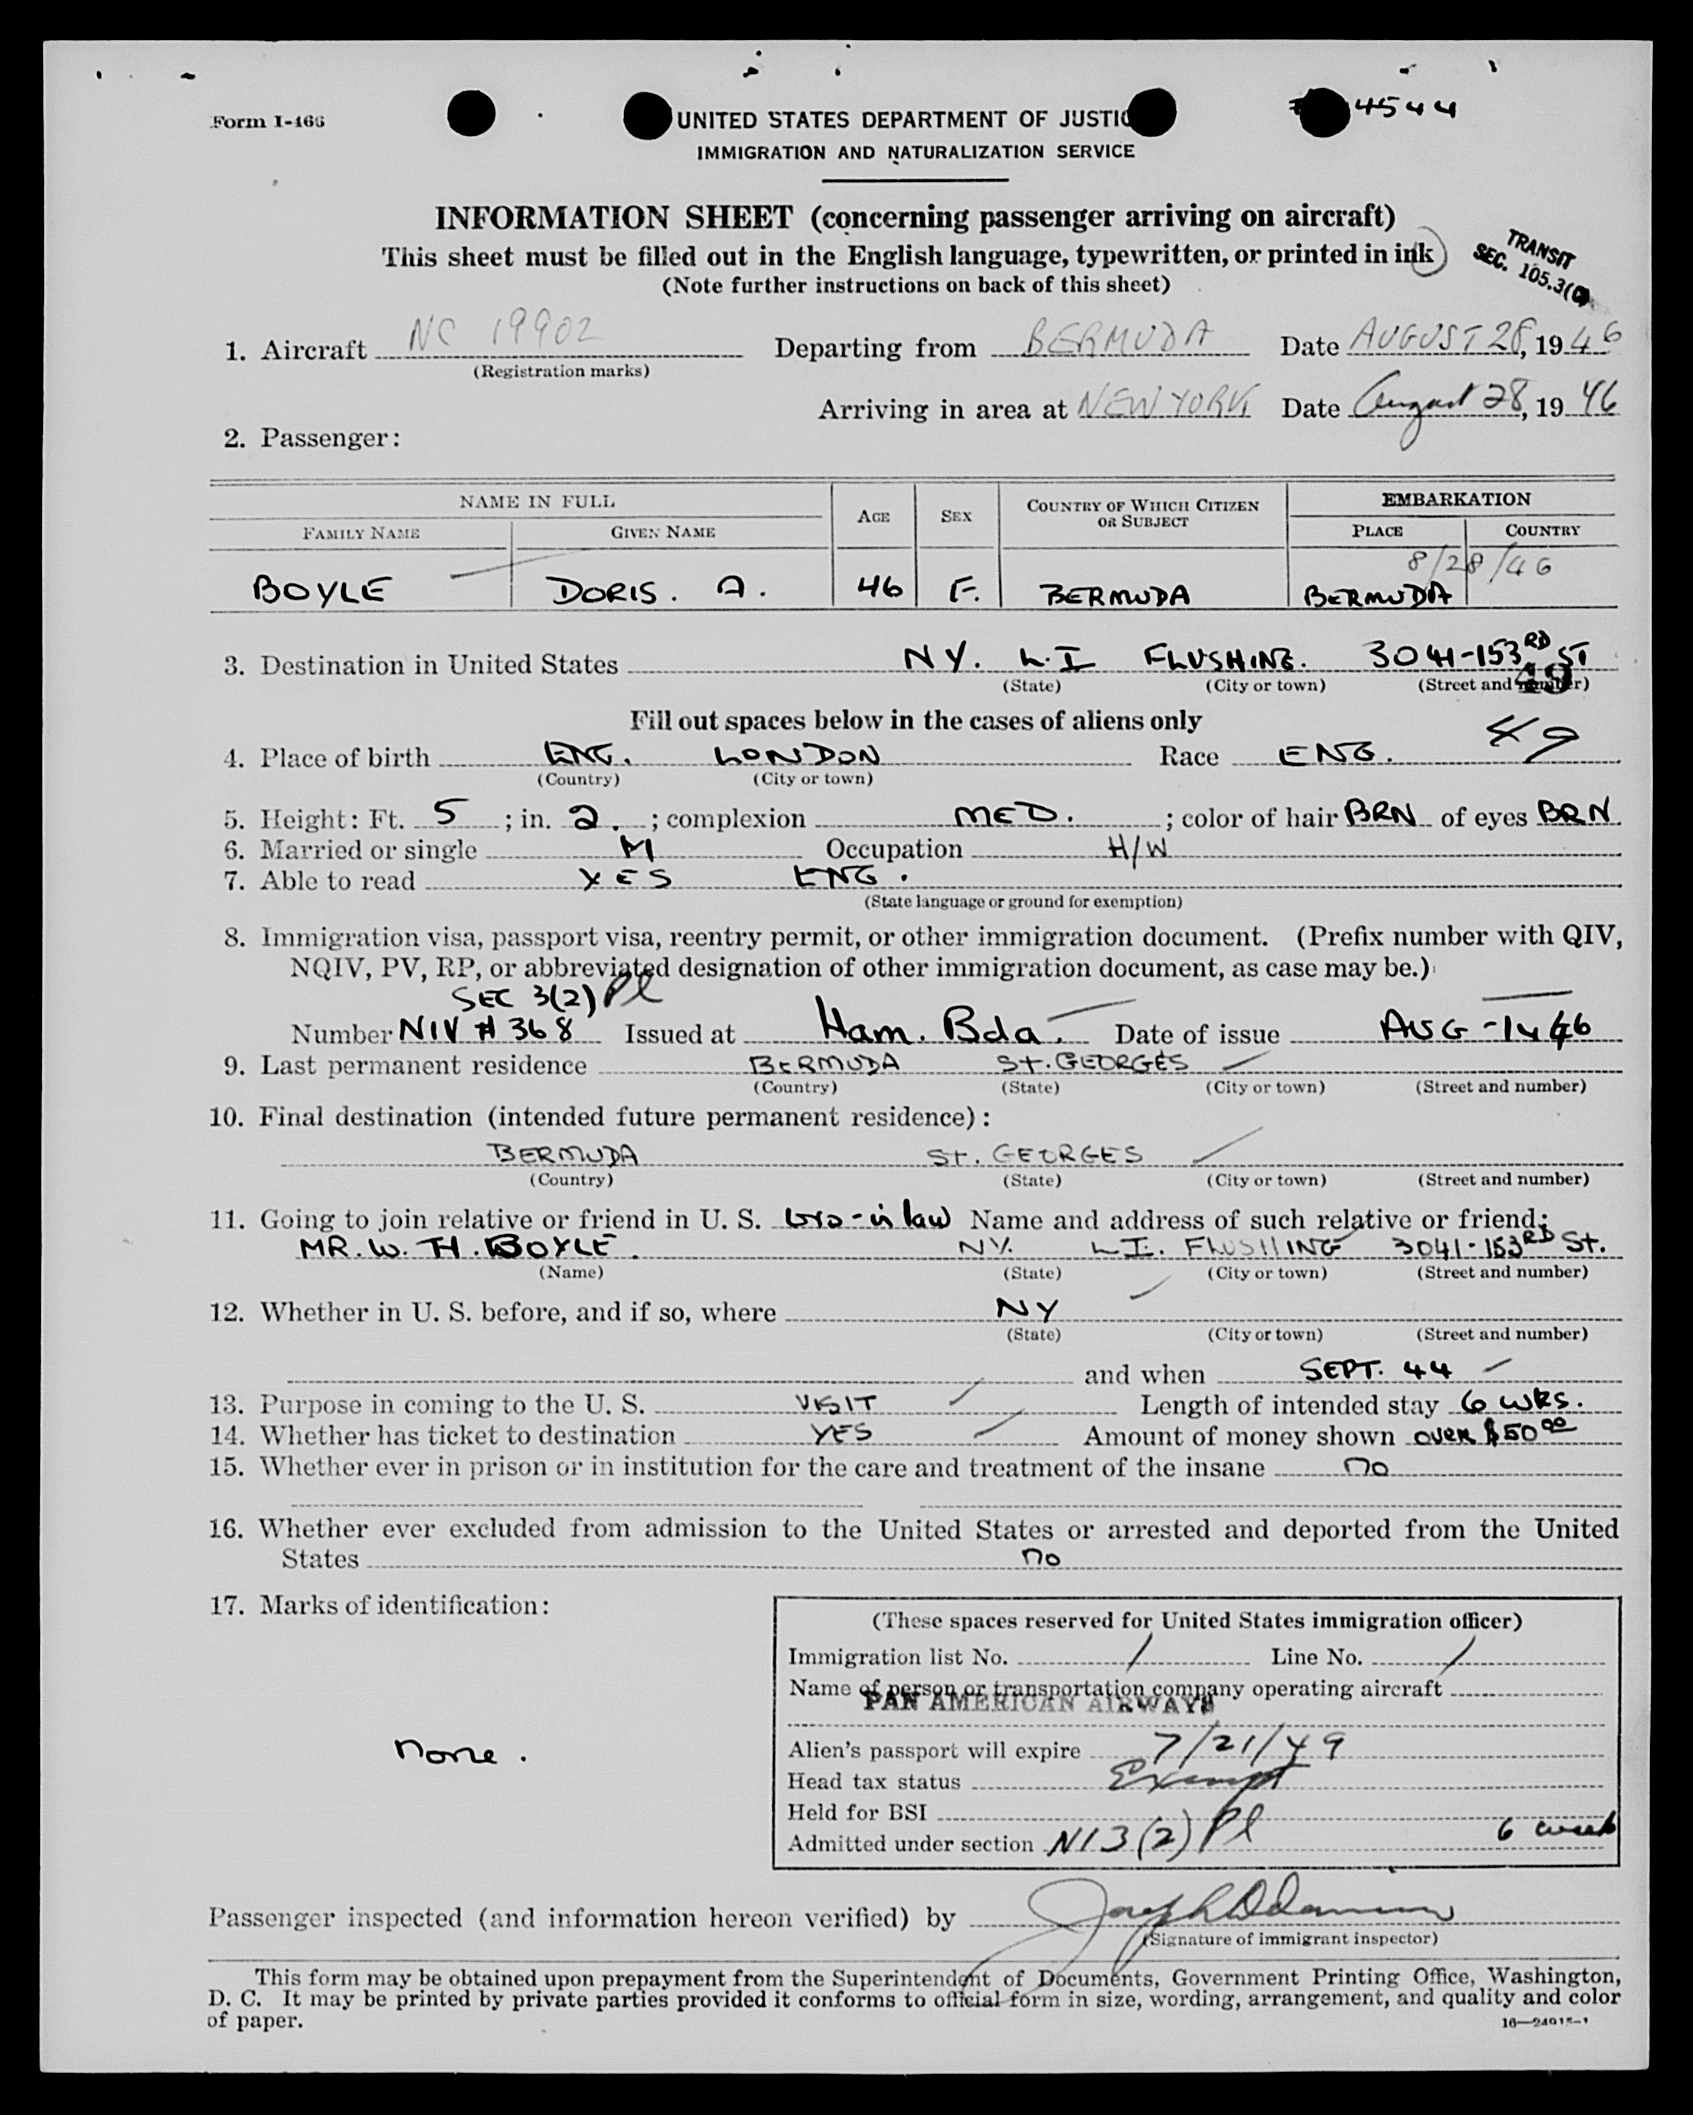 Form I-466
4544
UNITED STATES DEPARTMENT OF JUSTIC
IMMIGRATION AND NATURALIZATION SERVICE
INFORMATION SHEET (concerning passenger arriving on aircraft)
This sheet must be filled out in the English language, typewritten, or printed in ink
(Note further instructions on back of this sheet)
TRANSIT
SEC. 105.3(
1. Aircraft NC 19902 Departing from BERMUDA Date AUGUST 28, 1946
(Registration marks)
Arriving in area at NEW YORK Date August 28, 19 46
2. Passenger:
NAME IN FULL AGE SEX COUNTRY OF WHICH CITIZEN OR SUBJECT EMBARKATION
FAMILY NAME GIVEN NAME PLACE COUNTRY
8/28/46
BOYLE DORIS. A. 46 F. BERMUDA BERMUDA
3. Destination in United States NY. L.I FLUSHING. 3041-153RD ST
(State) (City or town) (Street and number)
49
Fill out spaces below in the cases of aliens only
49
4. Place of birth ENG. LONDON Race ENG.
(Country) (City or town)
5. Height: Ft. 5 ; in. 2. ; complexion MED. ; color of hair BRN of eyes BRN
6. Married or single M Occupation H/W
7. Able to read YES ENG.
(State language or ground for exemption)
8. Immigration visa, passport visa, reentry permit, or other immigration document. (Prefix number with QIV,
NQIV, PV, RP, or abbreviated designation of other immigration document, as case may be.)
SEC 3(2) Pl
Number NIV # 368 Issued at Ham. Bda. Date of issue AUG-1446
9. Last permanent residence BERMUDA St. GEORGES
(Country) (State) (City or town) (Street and number)
10. Final destination (intended future permanent residence):
BERMUDA St. GEORGES
(Country) (State) (City or town) (Street and number)
11. Going to join relative or friend in U. S. bro-in law Name and address of such relative or friend:
MR. W. H. BOYLE. NY. L.I. FLUSHING 3041-153RD St.
(Name) (State) (City or town) (Street and number)
12. Whether in U. S. before, and if so, where NY
(State) (City or town) (Street and number)
and when SEPT. 44
13. Purpose in coming to the U. S. VISIT Length of intended stay 6 WKS.
14. Whether has ticket to destination YES Amount of money shown OVER $50 00
15. Whether ever in prison or in institution for the care and treatment of the insane no
16. Whether ever excluded from admission to the United States or arrested and deported from the United
States no
17. Marks of identification:
none.
(These spaces reserved for United States immigration officer)
Immigration list No. / Line No. /
Name of person or transportation company operating aircraft
PAN AMERICAN AIRWAYS
Alien's passport will expire 7/21/49
Head tax status Exempt
Held for BSI
Admitted under section NI 3(2) Pl 6 week
Passenger inspected (and information hereon verified) by
(Signature of immigrant inspector)
This form may be obtained upon prepayment from the Superintendent of Documents, Government Printing Office, Washington,
D. C. It may be printed by private parties provided it conforms to official form in size, wording, arrangement, and quality and color
of paper.